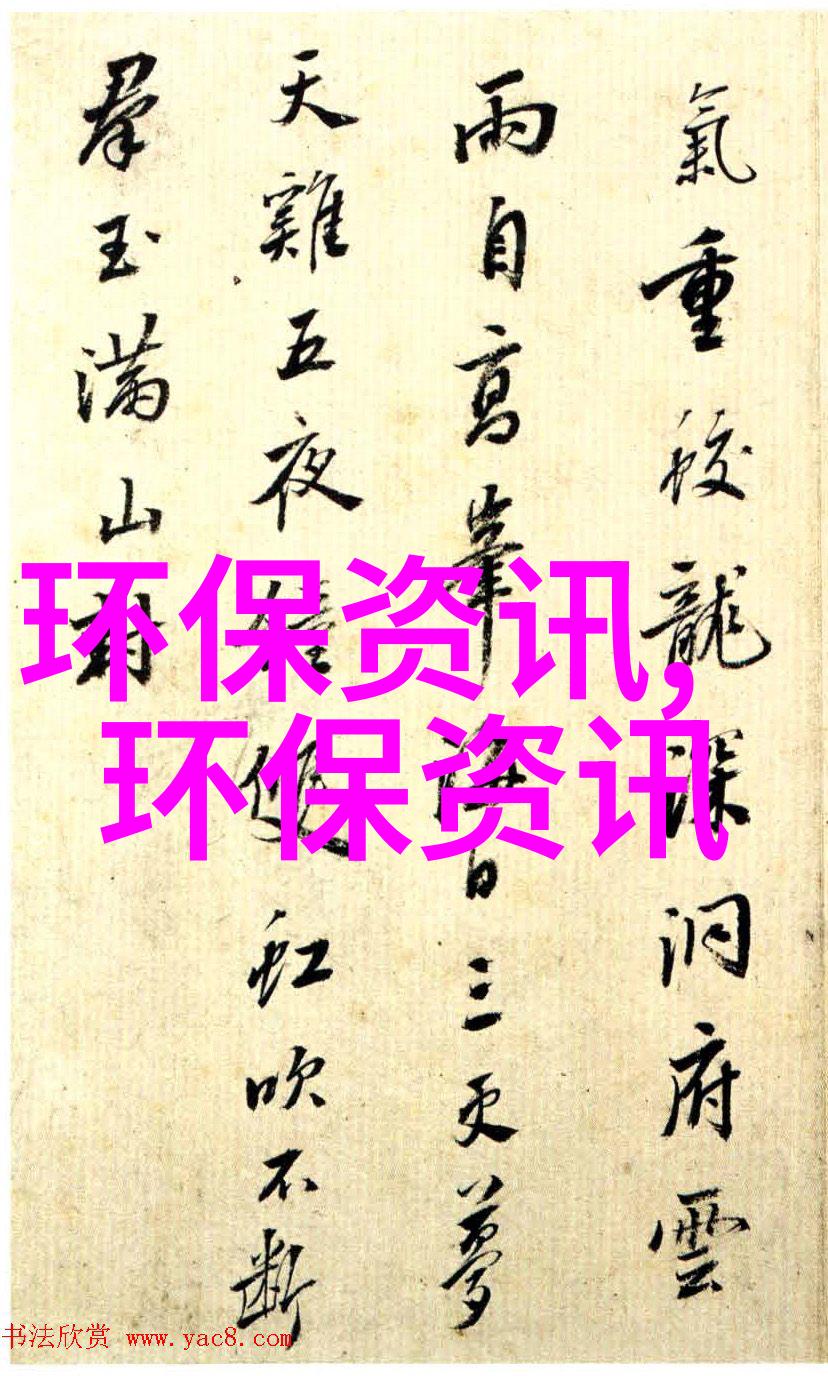 氣重蛟龍深洞府雲
雨自高峯海日三更夢
天雞五夜虹吹不斷
羣玉滿山封
环保资讯,
环保资讯
书法欣赏 www.yac8.com